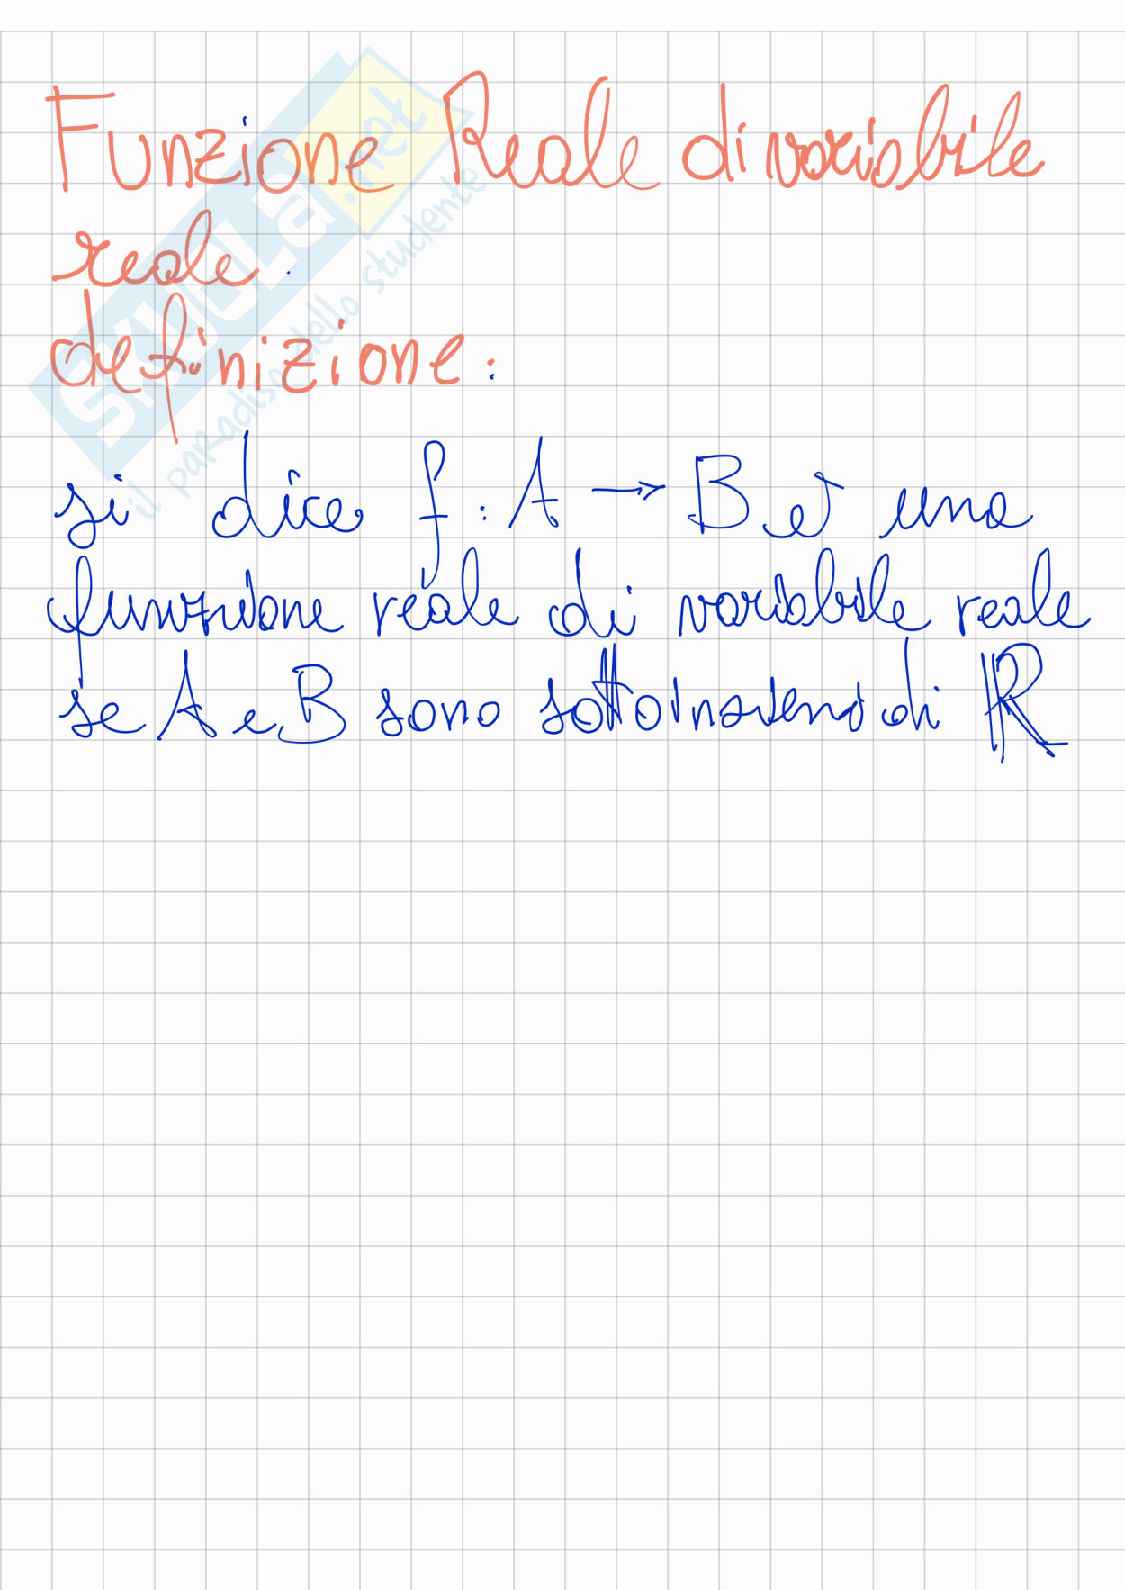 Funzione Reale di variabile
reale.
definizione:
si dice f: A → B è una
funzione reale di variabile reale
se A e B sono sottoinsiemi di ℝ
SKUOLA.net
il paradiso dello studente